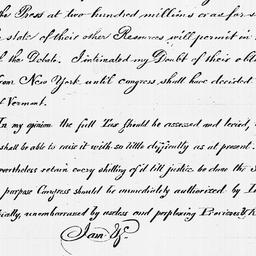 the Press at two hundred millions or as far so
state of their other Resources will permit in
of the Debate. I intimated my Doubt of their obli
from New York until Congress shall have decided
of Vermont.
In my opinion the full Tax should be assessed and levied,
shall be able to raise it with so little difficulty as at present.
nevertheless retain every shilling of it till justice be done the S
purpose Congress should be immediately authorized by L
cially, unembarrassed by useless and perplexing Provisos
I am &c.